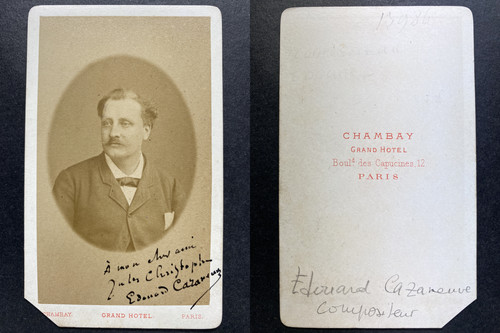 À mon cher ami
Jules Christophe
Edouard Cazaneuve
CHAMBAY
GRAND HOTEL
PARIS
CHAMBAY
GRAND HOTEL
Boul.d des Capucines, 12
PARIS
Edouard Cazaneuve
Compositeur